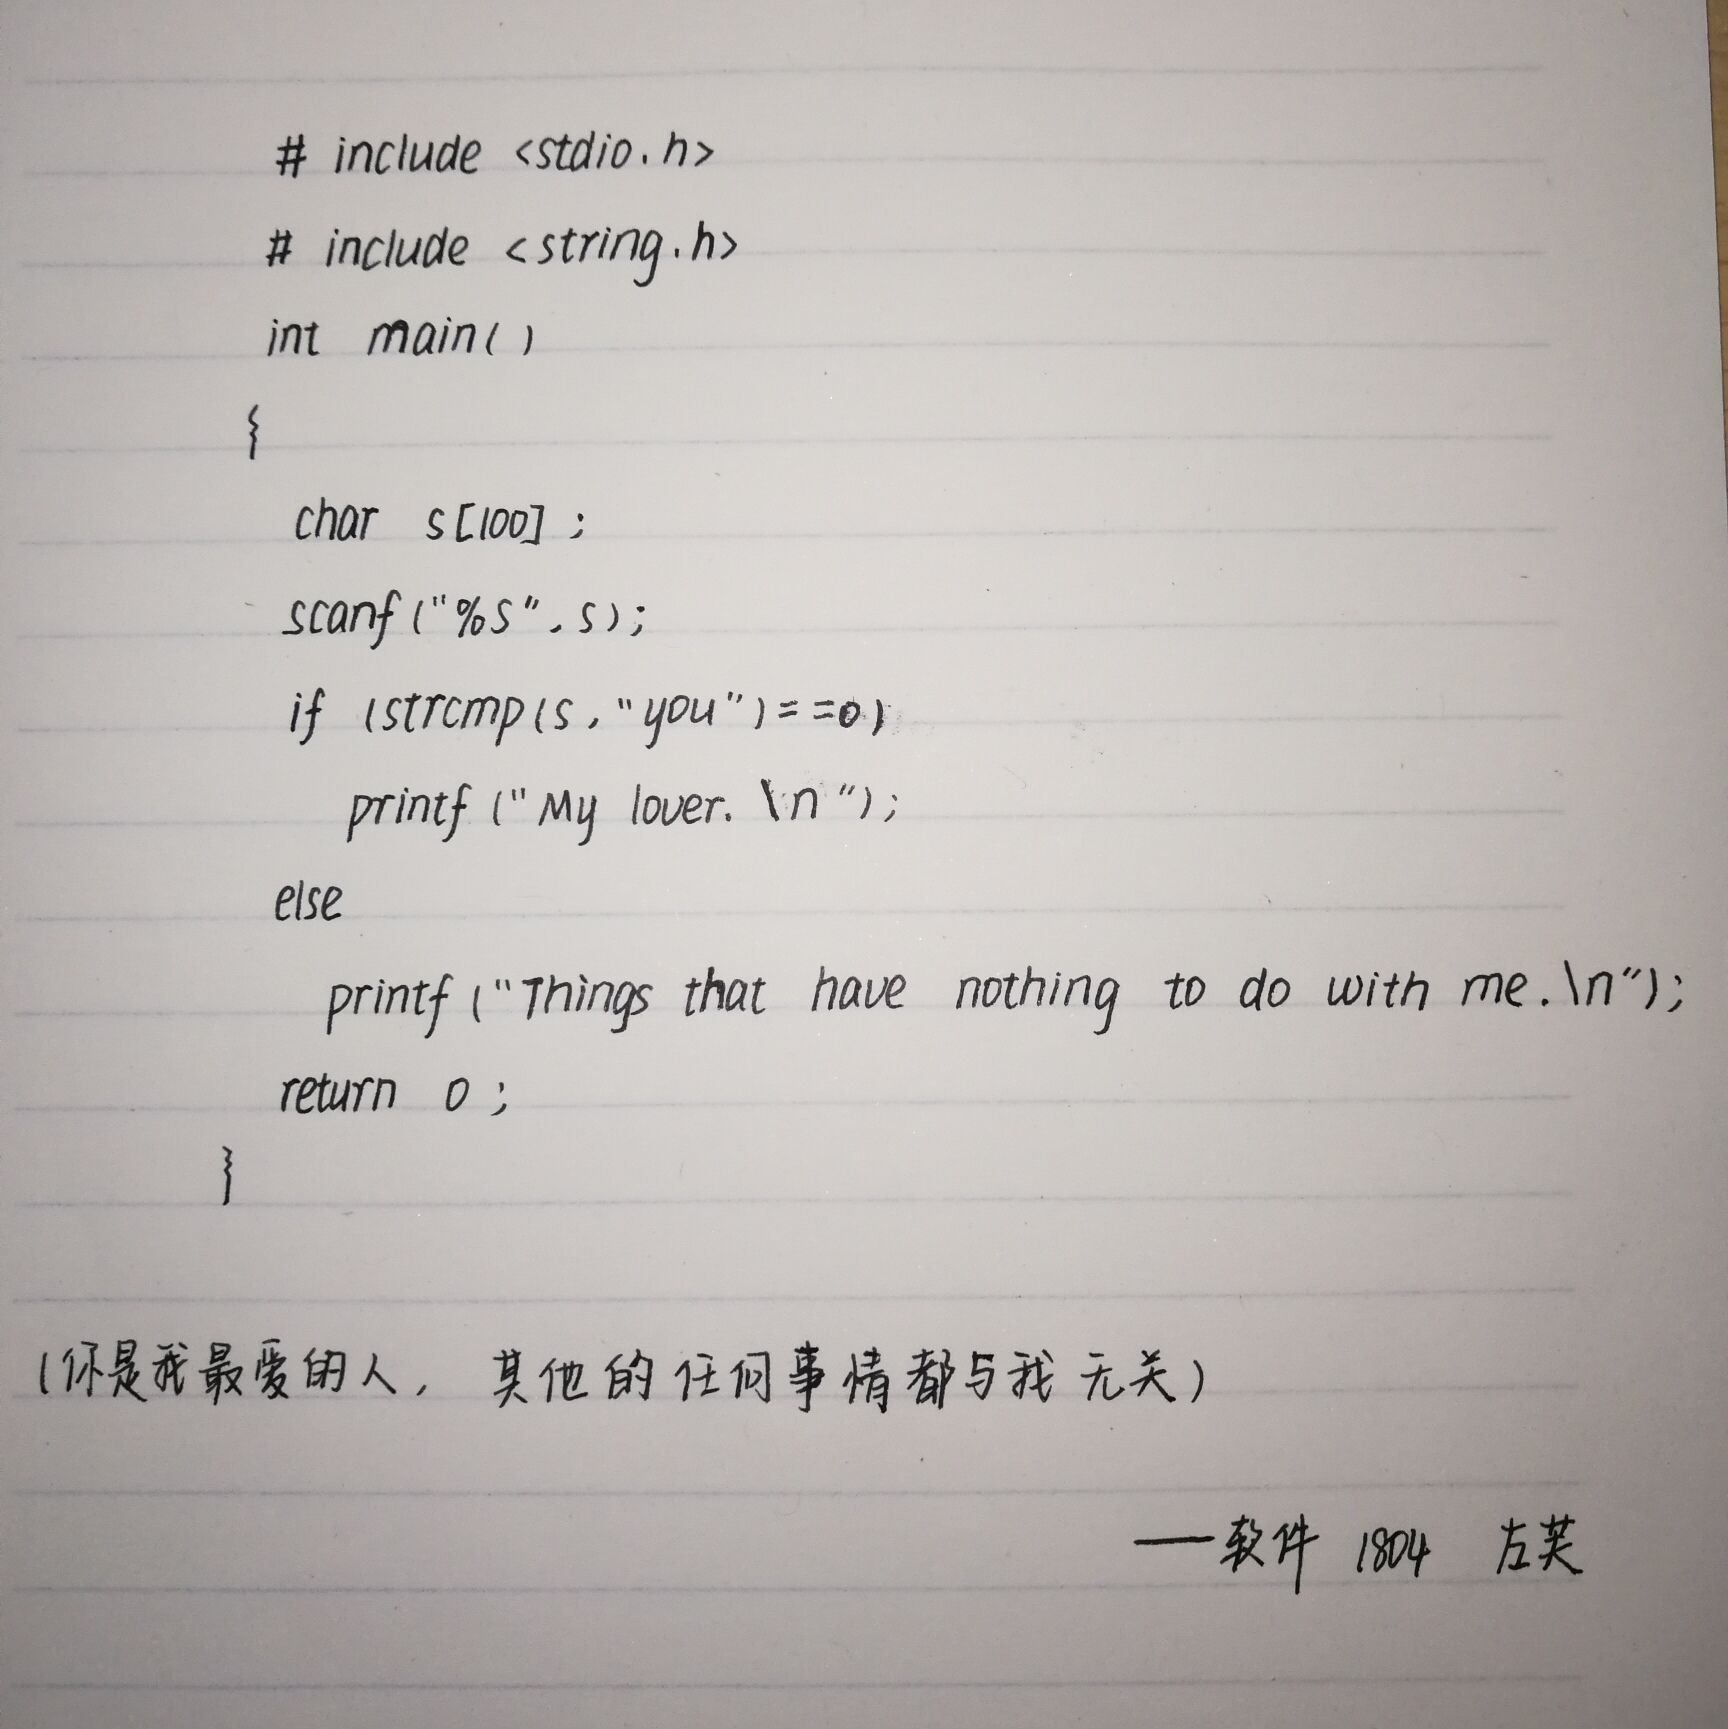 # include <stdio.h>
# include <string.h>
int main()
{
char s[100];
scanf("%s",s);
if (strcmp(s,"you")==0)
printf("My lover.\n");
else
printf("Things that have nothing to do with me.\n");
return 0;
}
(你是我最爱的人, 其他的任何事情都与我无关)
——软件 1804 左芙